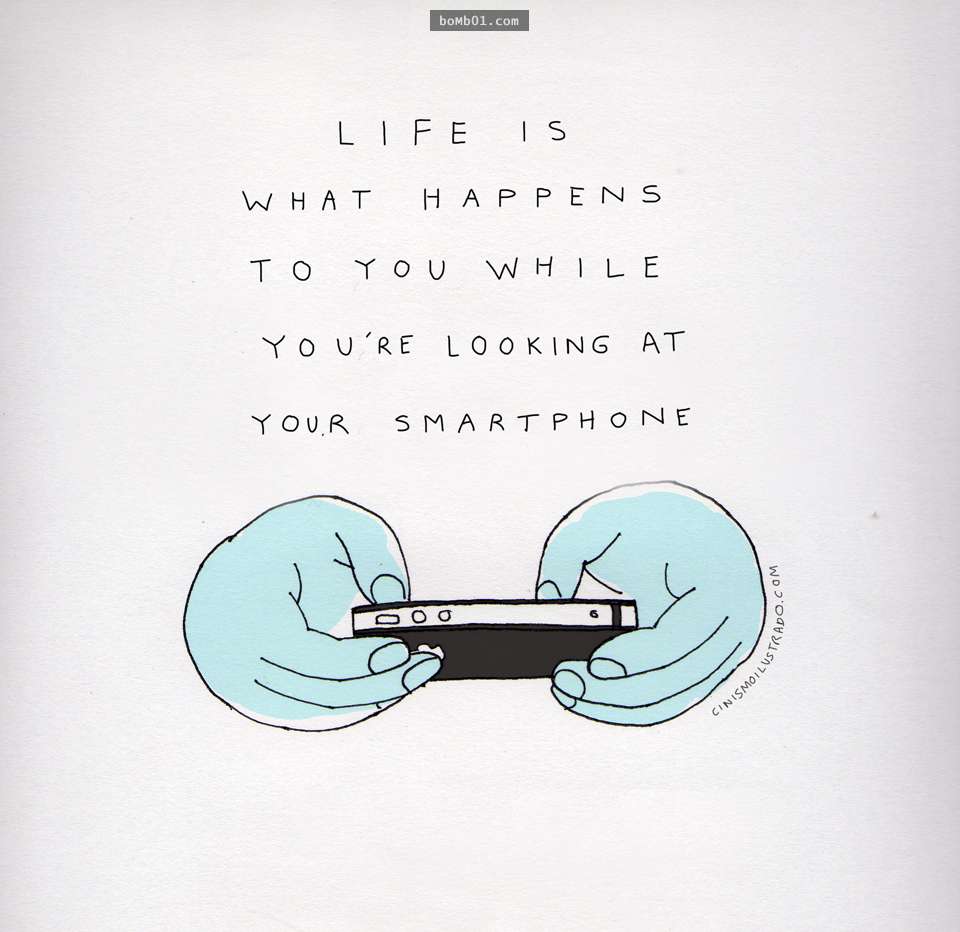 boMb01.com
LIFE IS
WHAT HAPPENS
TO YOU WHILE
YOU'RE LOOKING AT
YOUR SMARTPHONE
CINISMOILUSTRADO.COM